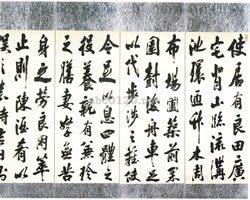 使居有良田廣
宅背山臨流溝
池環匝竹木周
布場圃築前果
園樹後舟車足
以代步涉之難使
令足以息四體之
役養親有兼珍
之膳妻孥無苦
身之勞良朋萃
止則陳酒肴以